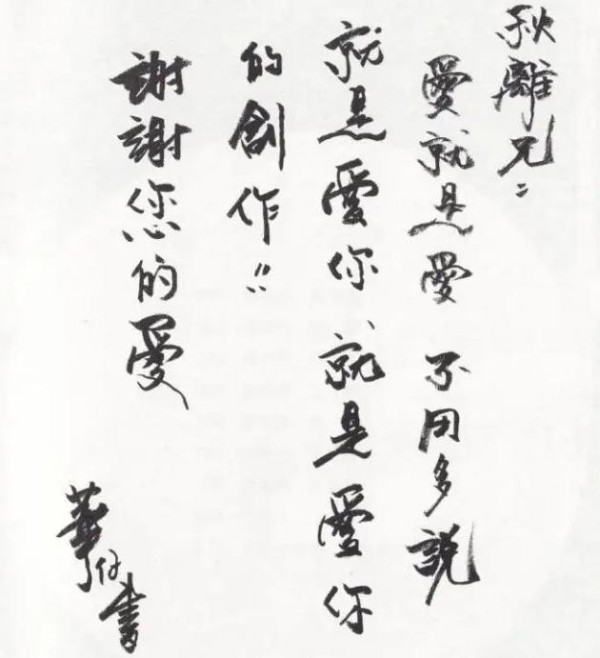 秋離兄：
愛就是愛 不用多說
就是愛你 就是愛你
的創作!!
謝謝您的愛
華仔書